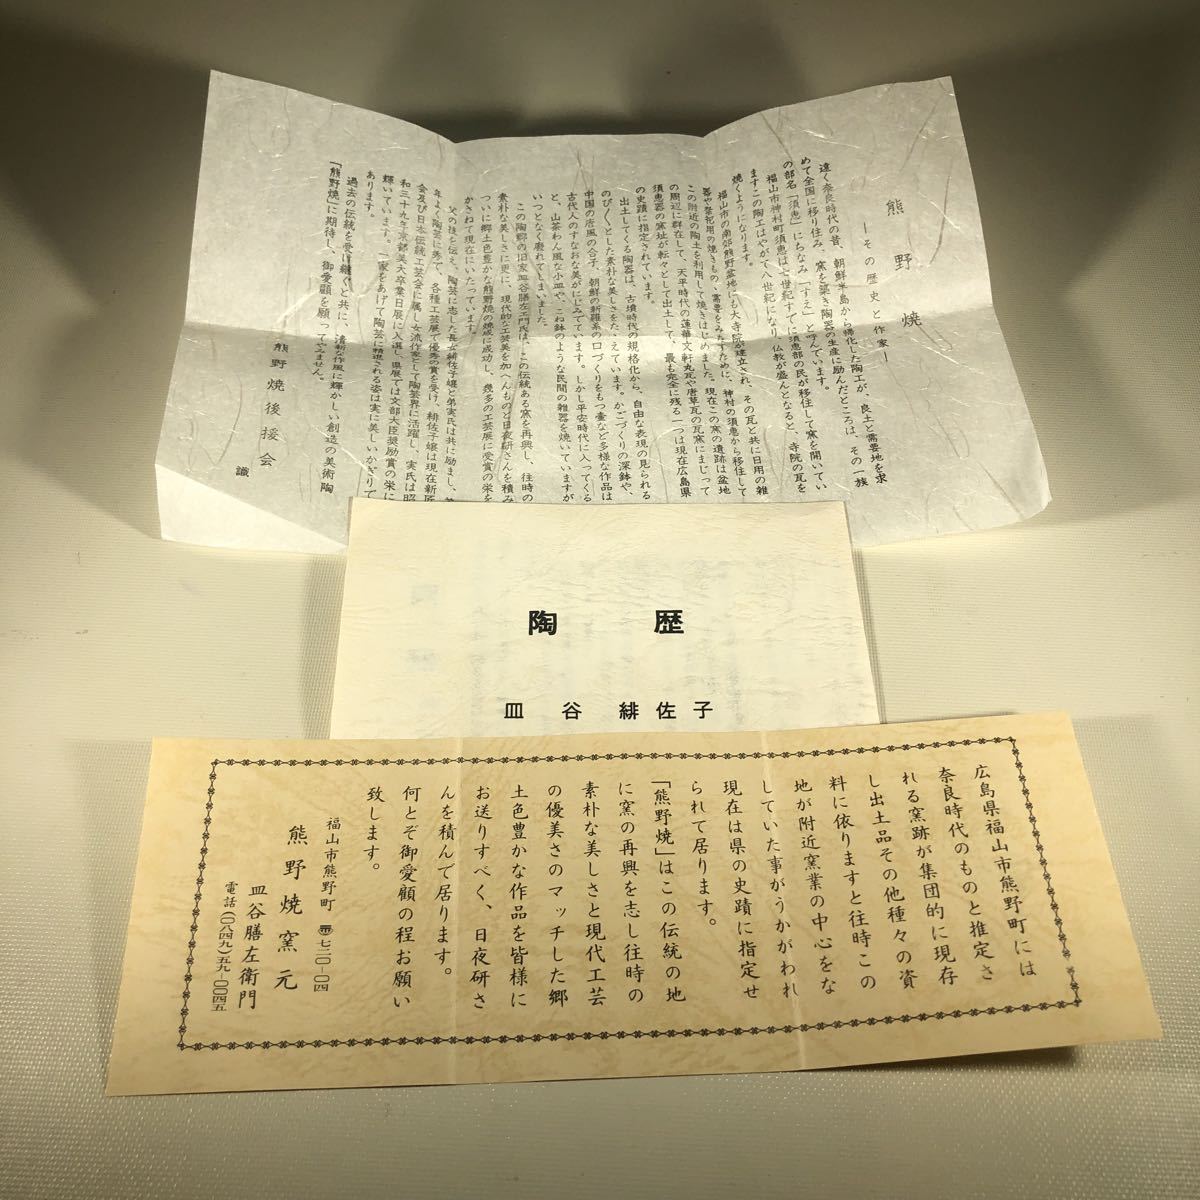 熊野焼
―その歴史と作家―
遠く奈良時代の昔、朝鮮半島から帰化した陶工が、良土と需要地を求
めて全国に移り住み、窯を築き陶器の生産に励んだところは、その一族
の部名「須恵」にちなみ「すえ」と呼んでいます。
福山市神村町須恵は七世紀すでに須恵部の民が移住して窯を開いてい
ますこの陶工はやがて八世紀になり、仏教が盛んとなると、寺院の瓦を
焼くようになります。
福山市の南郊熊野盆地にも大寺院が建立され、その瓦と共に日用の雑
器や祭祀用の焼きもの、需要をみたすために、神村の須恵から移住して
この附近の陶土を利用して焼きはじめました。現在この窯の遺跡は盆地
の周辺に群在して、天平時代の蓮華文軒丸瓦や唐草瓦の瓦窯にまじって
須恵器の窯址が転々として出土して、最も完全に残る一つは現在広島県
の史蹟に指定されています。
出土してくる陶器は、古墳時代の規格化から、自由な表現の見られる
のび〳〵とした素朴な美しさをたゝえています。かごづくりの深鉢や、
中国の唐風の合子、朝鮮の新羅系の口づくりをもつ壷など多様な作品は
古代人のすなおな美がにじみでています。しかし平安時代に入ってくる
と、山茶わん風な小皿や、こね鉢のような民間の雑器を焼いていますが
いつとなく廃れてしまいました。
この陶郷の旧家皿谷膳左ェ門氏は、この伝統ある窯を再興し、往時の
素朴な美しさに更に、現代的な工芸美を加へんものと日夜研さんを積み
ついに郷土色豊かな熊野焼の焼成に成功し、幾多の工芸展に受賞の栄を
かさねて現在にいたっています。
父の後を伝え、陶芸に志した長女緋佐子嬢と弟実氏は共に励まし、
年よく陶芸に秀で、各種工芸展で優秀の賞を受け、緋佐子嬢は現在新匠
会及び日本伝統工芸会に属し女流作家として陶芸界に活躍し、実氏は昭
和三十九年京都美大卒業日展に入選し、県展では文部大臣奨励賞の栄に
輝いています。一家をあげて陶芸に精進される姿は実に美しいかぎりで
あります。
過去の伝統を受け継ぐと共に、清新な作風に輝かしい創造の美術陶
「熊野焼」に期待し、御愛顧を願ってやみません。
熊野焼後援会
識
陶歴
皿谷緋佐子
広島県福山市熊野町には
奈良時代のものと推定さ
れる窯跡が集団的に現存
し出土品その他種々の資
料に依りますと往時この
地が附近窯業の中心をな
していた事がうかがわれ
現在は県の史蹟に指定せ
られて居ります。
「熊野焼」はこの伝統の地
に窯の再興を志し往時の
素朴な美しさと現代工芸
の優美さのマッチした郷
土色豊かな作品を皆様に
お送りすべく、日夜研さ
んを積んで居ります。
何とぞ御愛顧の程お願い
致します。
福山市熊野町 〠七二〇-〇四
熊野焼窯元
皿谷膳左衛門
電話(〇八四九)五九-〇〇四五